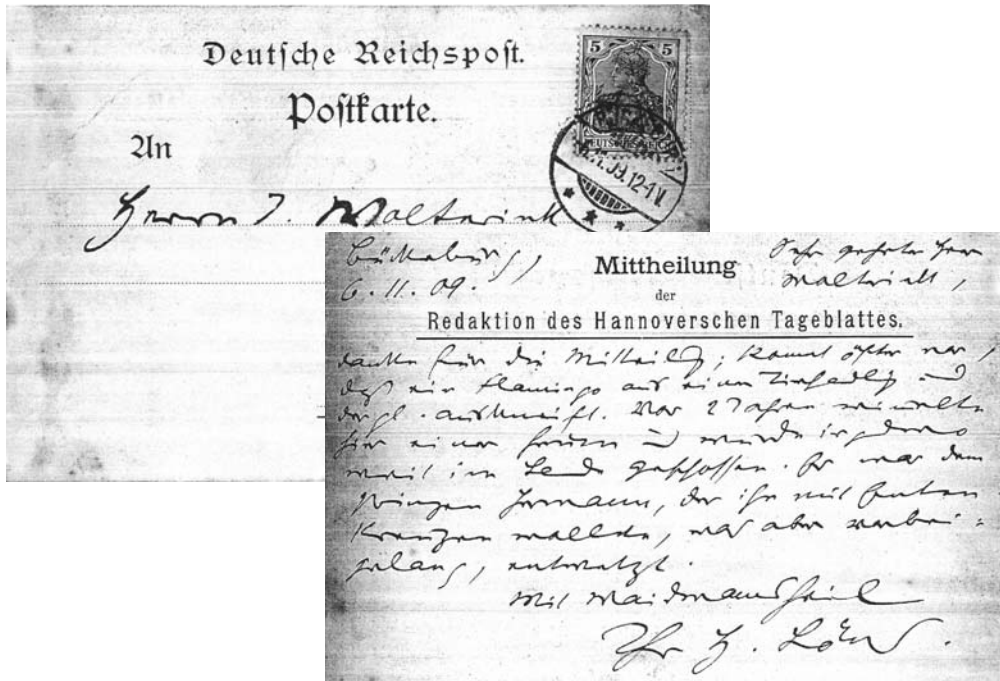 Deutsche Reichspost.
Postkarte.
An
Herrn J. Wolterink
5 5
DEUTSCHES REICH
09.12-1V.
Bückeburg,
6.11.09.
Mittheilung
der
Redaktion des Hannoverschen Tageblattes.
Sehr geehrter Herr
Wolterink,
danke für die Mitteilg; kommt öfter vor,
daß ein Flamingo aus einem und
dergl. auskneift. Vor 2 Jahren
hier einer und wurde irgendwo
weit im Lande geschossen. Er war dem
Prinzen Hermann, der ihn mit Enten
kreuzen wollte, was aber vorbei-
gelang, entwetzt.
Mit Waidmannsheil
Ihr H. Löns.